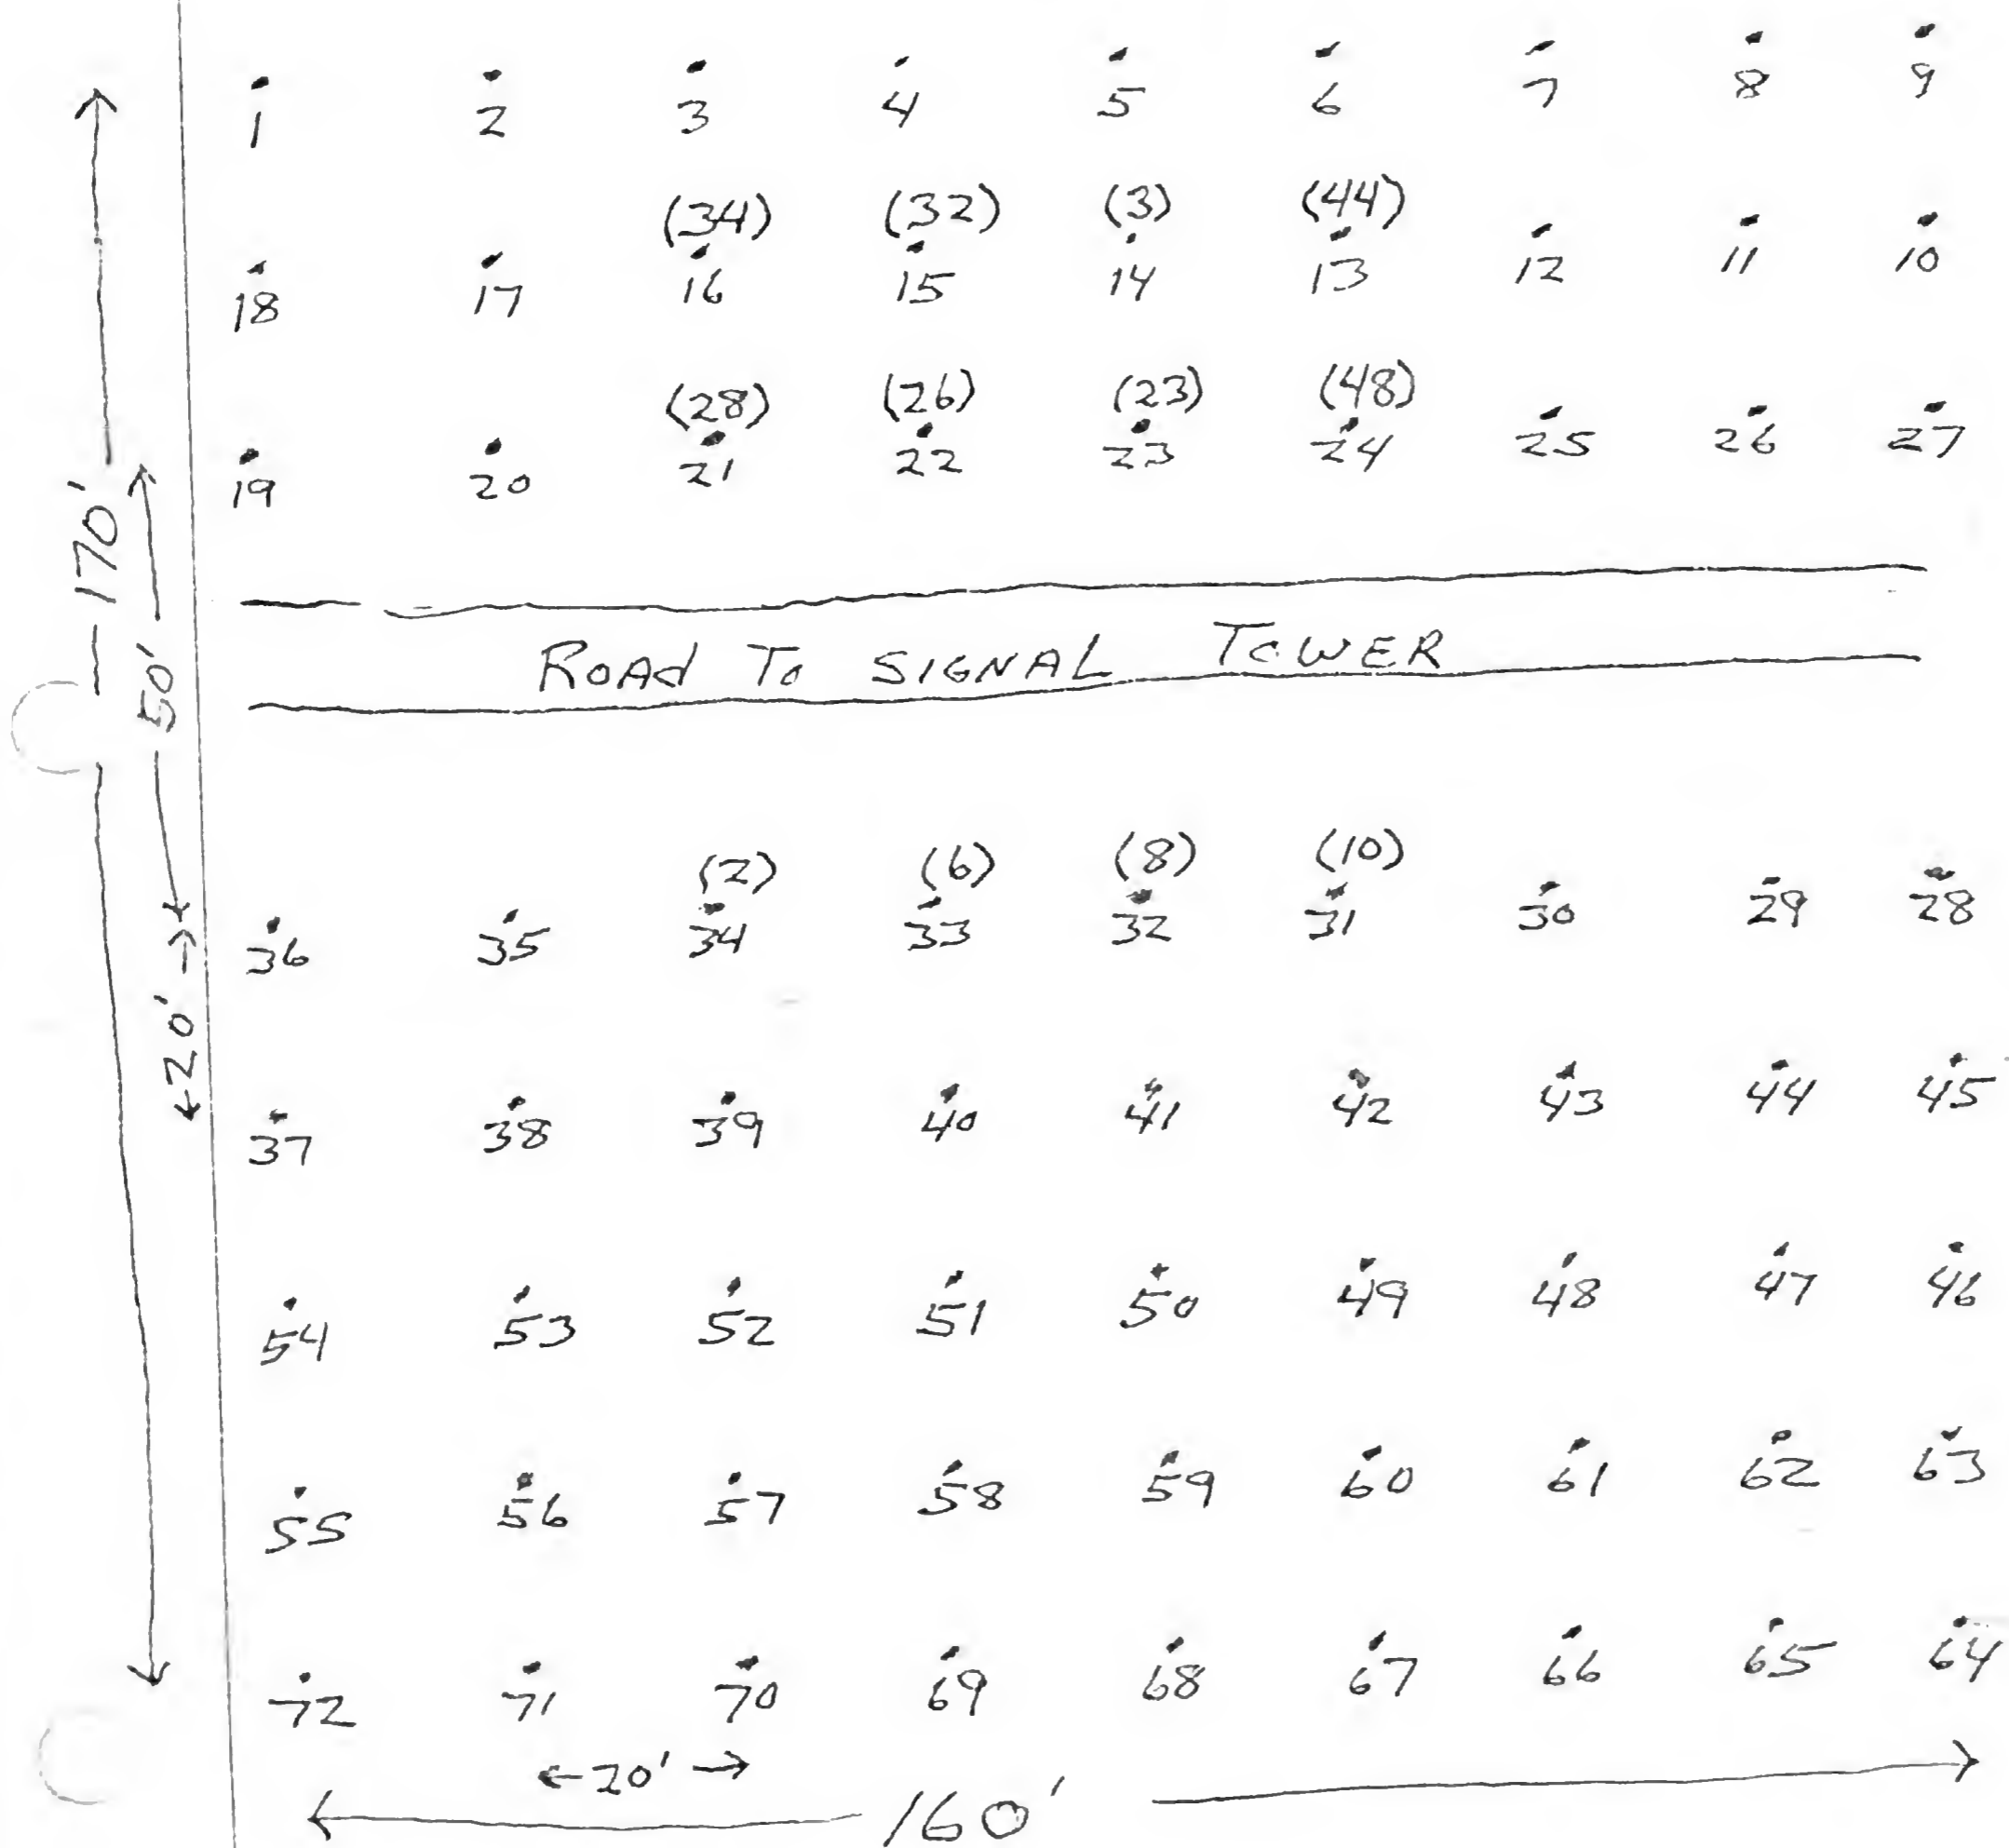 1 2 3 4 5 6 7 8 9
(34) (32) (3) (44)
18 17 16 15 14 13 12 11 10
(28) (26) (23) (48)
19 20 21 22 23 24 25 26 27
170'
50'
ROAd To SIGNAL TOWER
(2) (6) (8) (10)
36 35 34 33 32 31 30 29 28
20'
37 38 39 40 41 42 43 44 45
54 53 52 51 50 49 48 47 46
55 56 57 58 59 60 61 62 63
72 71 70 69 68 67 66 65 64
20'
160'